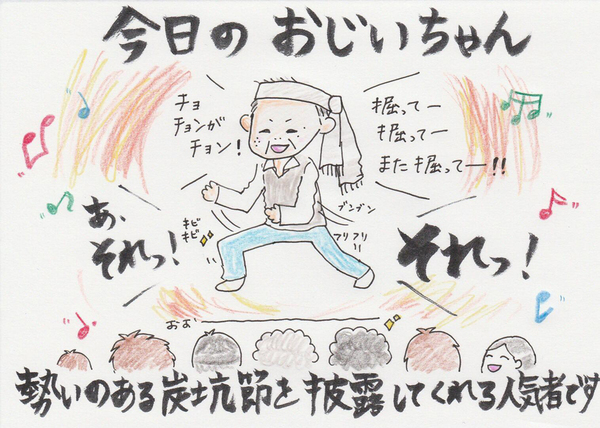 今日のおじいちゃん
チョ
チョンが
チョン！
掘ってー
掘ってー
また掘ってー!!
あ、
それっ！
キビ
キビ
ブンブン
フリフリ
それっ！
おぉ
勢いのある炭坑節を披露してくれる人気者です